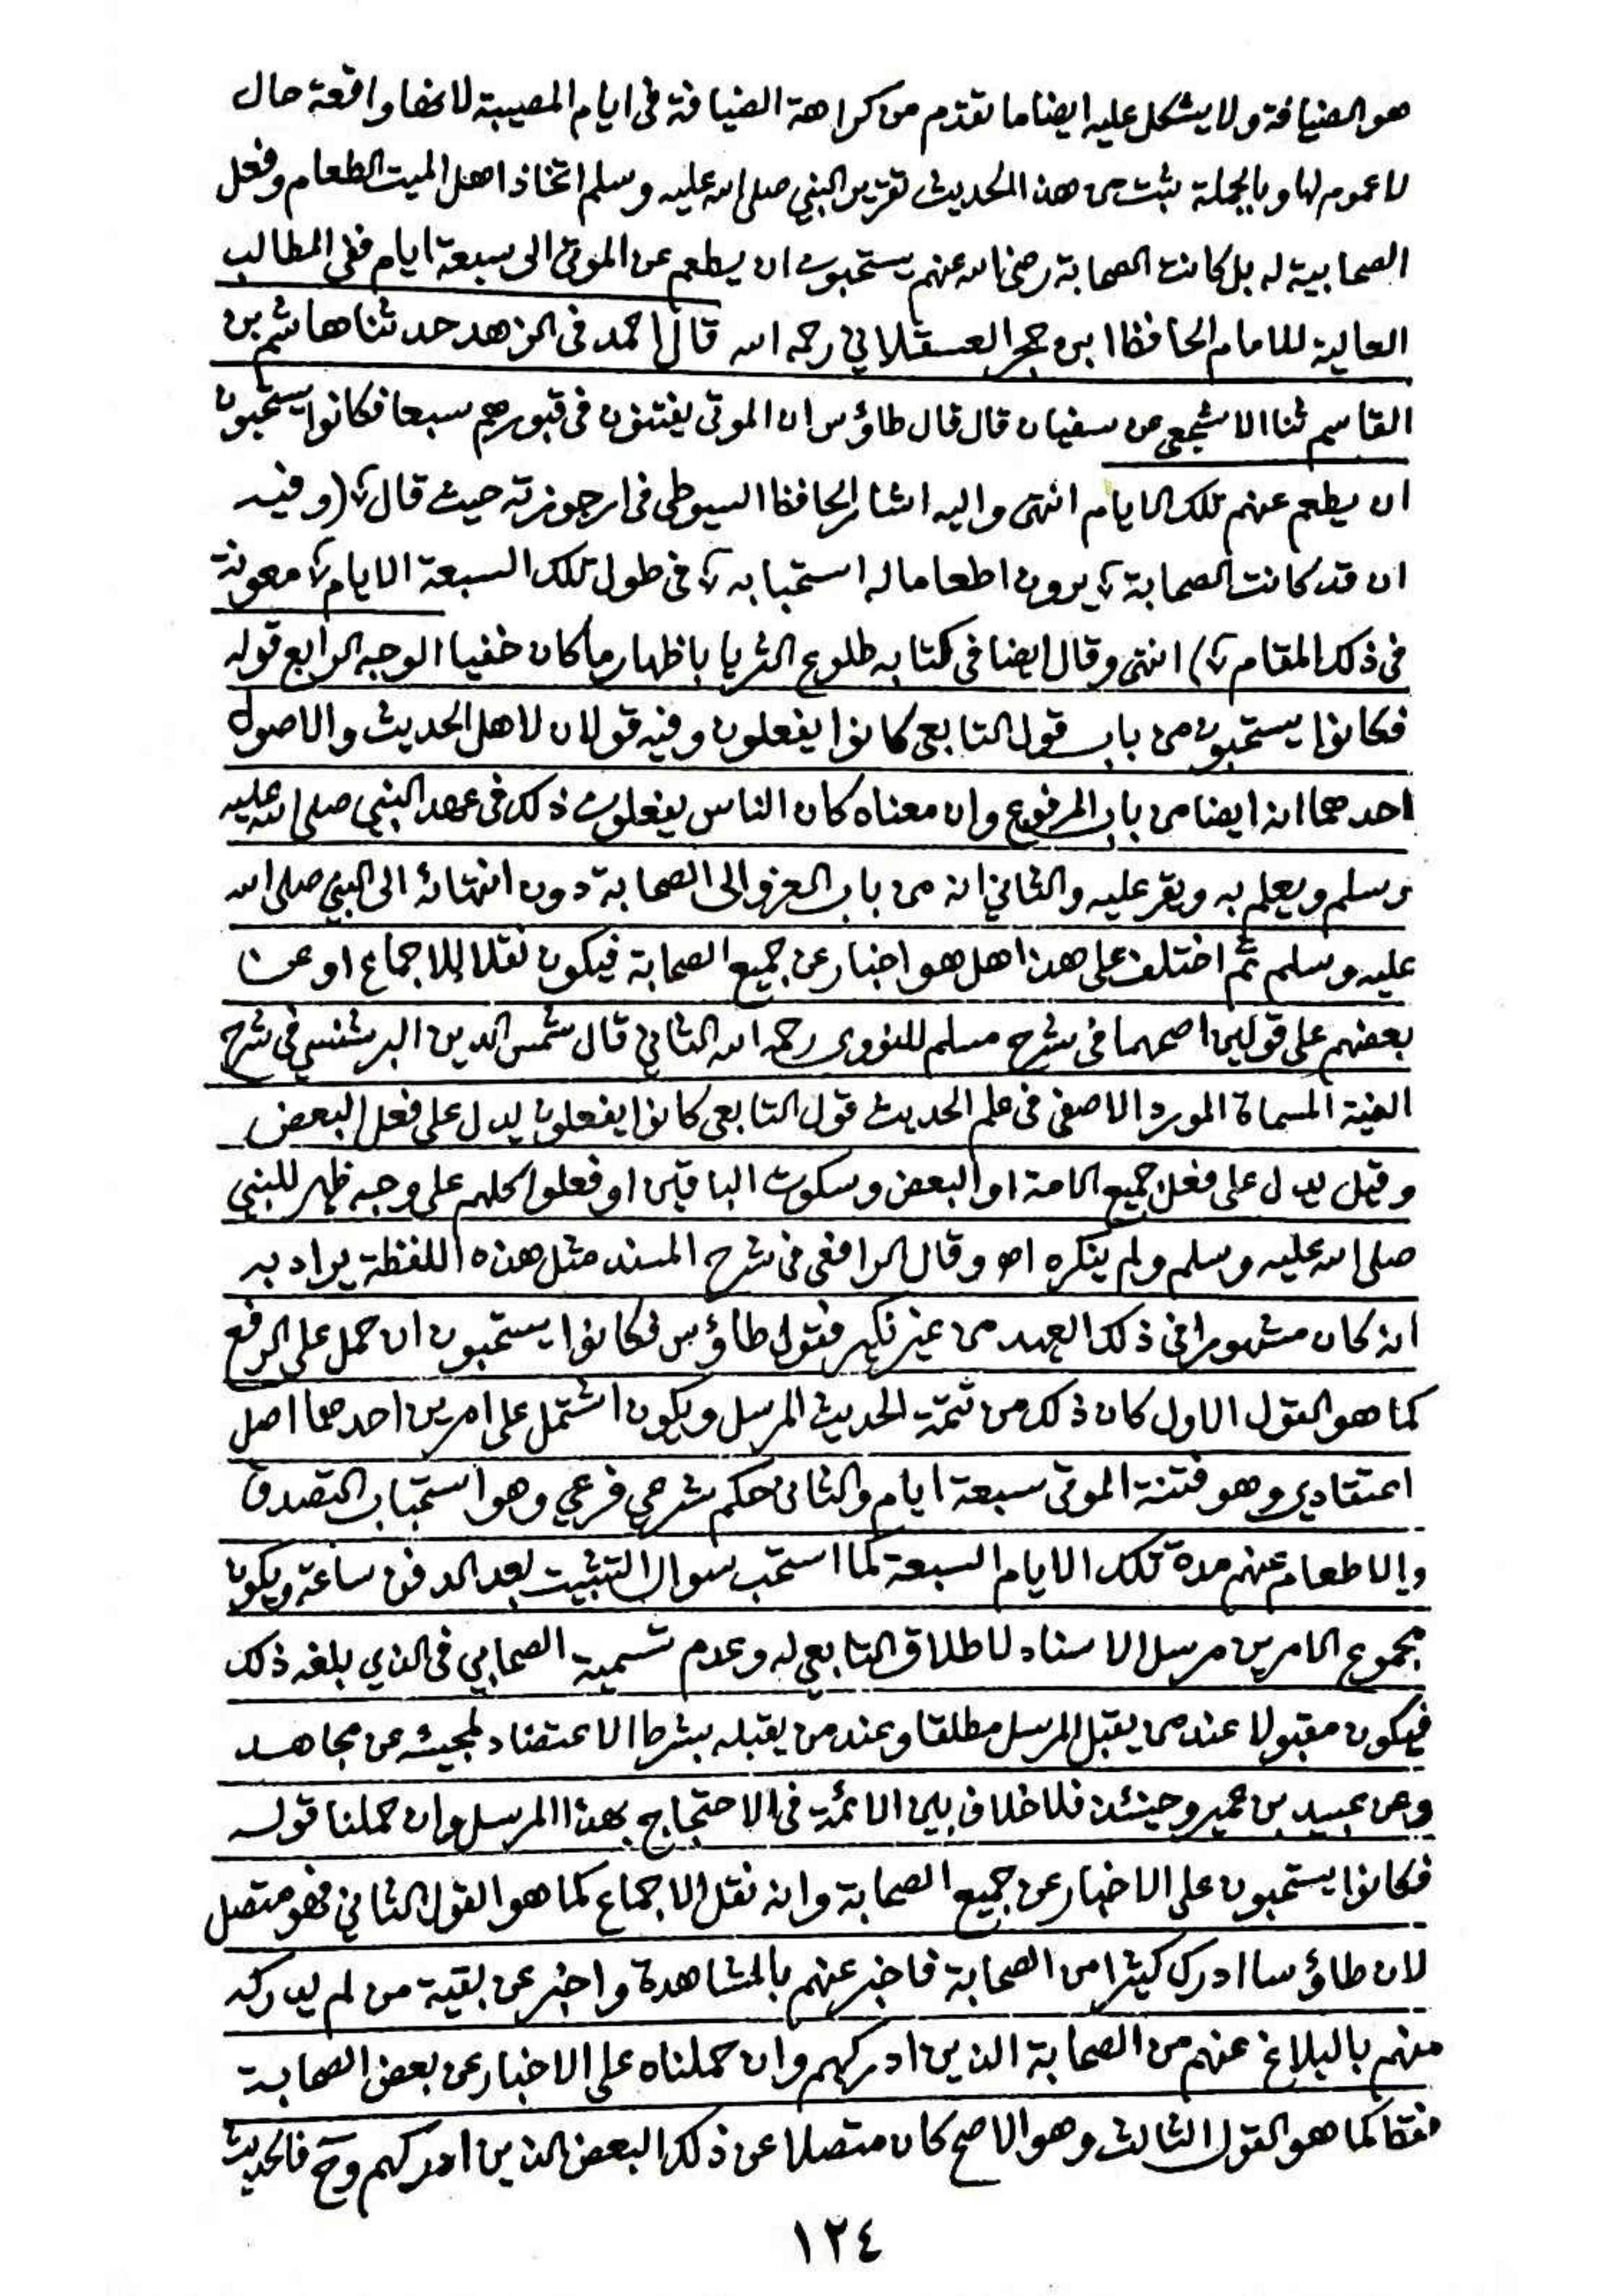 هو الضيافة ولا يشكل عليه ايضا ما تقدم من كراهة الضيافة فى ايام المصيبة لانها واقعة حال
لا عموم لها وبالجملة يثبت من هذا الحديث تقرير النبي صلى الله عليه وسلم اتخاذ اهل الميت الطعام وفعل
الصحابية له بل كانت الصحابة رضي الله عنهم يستحبون ان يطعم عن الموتى الى سبعة ايام ففي المطالب
العالية للامام الحافظ ابن حجر العسقلاني رحمه الله قال احمد فى الزهد حدثنا هاشم بن
القاسم ثنا الاشجعي عن سفيان قال قال طاؤس ان الموتى يفتنون فى قبورهم سبعا فكانوا يستحبون
ان يطعم عنهم تلك الايام انتهى واليه اشار الحافظ السيوطى فى ارجوزته حيث قال ؂ (وفيه
ان قد كانت الصحابة ؂ يرون اطعاما له استحبابه ؂ فى طول تلك السبعة الايام ؂ معونة
فى ذلك المقام ؂) انتهى وقال ايضا فى كتابه طلوع الثريا باظهار ما كان خفيا الوجه الرابع قوله
فكانوا يستحبون من باب قول التابعى كانوا يفعلون وفيه قولان لاهل الحديث والاصول
احدهما انه ايضا من باب المرفوع وان معناه كان الناس يفعلون ذلك فى عهد النبي صلى الله عليه
وسلم ويعلم به ويقر عليه والثاني انه من باب العزو الى الصحابة دون انتهائه الى النبي صلى الله
عليه وسلم ثم اختلف على هذا هل هو اخبار عن جميع الصحابة فيكون نقلا للاجماع او عن
بعضهم على قولين اصحهما فى شرح مسلم للنووى رحمه الله الثاني قال شمس الدين البرشنسي فى شرح
الفيته المسماة المورد الاصفى فى علم الحديث قول التابعى كانوا يفعلون يدل على فعل البعض
وقيل يدل على فعل جميع الامة او البعض وسكوت الباقين او فعلوا كلهم على وجه ظهر للنبي
صلى الله عليه وسلم ولم ينكره اه وقال الرافعى فى شرح المسند مثل هذه اللفظة يراد به
انه كان مشهورا فى ذلك العهد من غير نكير فقول طاؤس فكانوا يستحبون ان حمل على الرفع
كما هو القول الاول كان ذلك من تتمة الحديث المرسل ويكون اشتمل على امرين احدهما اصل
اعتقادي وهو فتنة الموتى سبعة ايام والثانى حكم شرعي فرعي وهو استحباب التصدق
والاطعام عنهم مدة تلك الايام السبعة كما استحب سوال التثبيت بعد الدفن ساعة ويكون
مجموع الامرين مرسل الاسناد لاطلاق التابعي له وعدم تسمية الصحابي فى الذي بلغه ذلك
فيكون مقبولا عند من يقبل المرسل مطلقا وعند من يقبله بشرط الاعتضاد لمجيئه عن مجاهد
وعن عبيد بن عمير وحينئذ فلا خلاف بين الائمة فى الاحتجاج بهذا المرسل وان حملنا قوله
فكانوا يستحبون على الاخبار عن جميع الصحابة وانه نقل الاجماع كما هو القول الثاني فهو متصل
لان طاؤسا ادرك كثيرا من الصحابة فاخبر عنهم بالمشاهدة واخبر عن بقية من لم يدركه
منهم بالبلاغ عنهم من الصحابة الذين ادركهم وان حملناه على الاخبار عن بعض الصحابة
فقط كما هو القول الثالث وهو الاصح كان متصلا عن ذلك البعض الذين ادركهم وح فالحديث
١٢٤